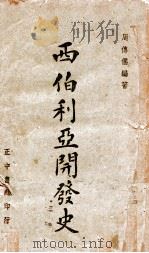 周傳儒編著
西伯利亞開發史
正中書局印行
www.toutu.com